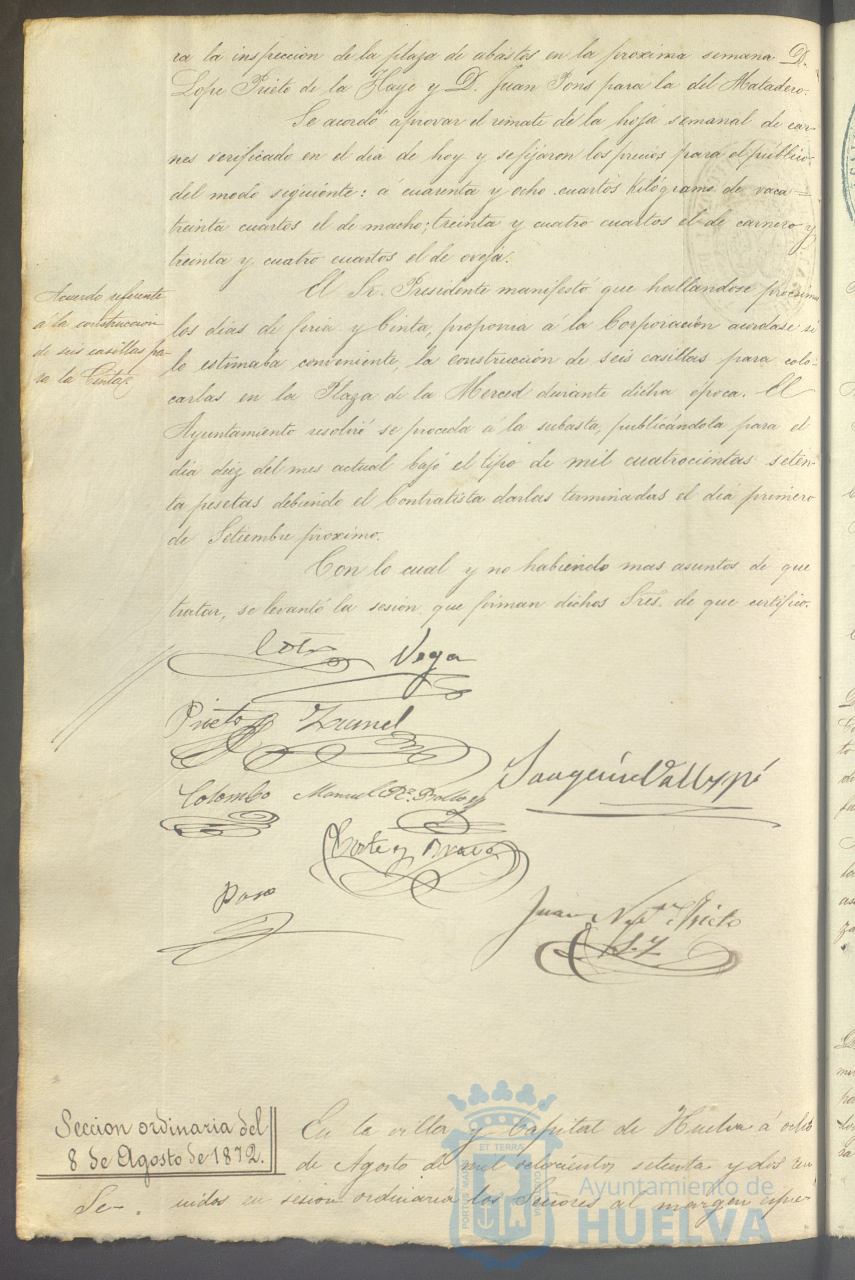 ra la inspeccion de la plaza de abastos en la proxima semana D.
Lope Prieto de la Haye y D. Juan Pons para la del Matadero.
Se acordó aprovar el remate de la hoja semanal de car-
nes verificado en el dia de hoy y se fijaron los precios para el público
del modo seguiente: á cuarenta y ocho cuartos kilógramo de vaca=
treinta cuartos el de macho; treinta y cuatro cuartos el de carnero y
treinta y cuatro cuartos el de oveja.
Acuerdo referente
á la construccion
de seis casillas pa-
ra la Cinta
El Sr. Presidente manifestó que hallandose proximos
los dias de feria y Cinta, proponia á la Corporacion acordase si
lo estimaba conveniente, la construccion de seis casillas para colo-
carlas en la Plaza de la Merced durante dicha época. El
Ayuntamiento resolvió se proceda á la subasta, publicándola para el
dia diez del mes actual bajo el tipo de mil cuatrocientas seten-
ta pesetas debiendo el Contratista darlas terminadas el dia primero
de Setiembre proximo.
Con lo cual y no habiendo mas asuntos de que
tratar, se levantó la sesion que firman dichos Sres. de que certifico.
Coto Vega
Prieto
Colombo Manuel
Joaquin
Cortes y Bravo
Juan Prieto
Seccion ordinaria del
8 de Agosto de 1872.
En la villa y Capital de Huelva á ocho
de Agosto de mil ochocientos setenta y dos reu
Se-.
nidos en sesion ordinaria los Señores al margen espre-
ET TERRÆ
PORTUS MARIS
Ayuntamiento de
HUELVA